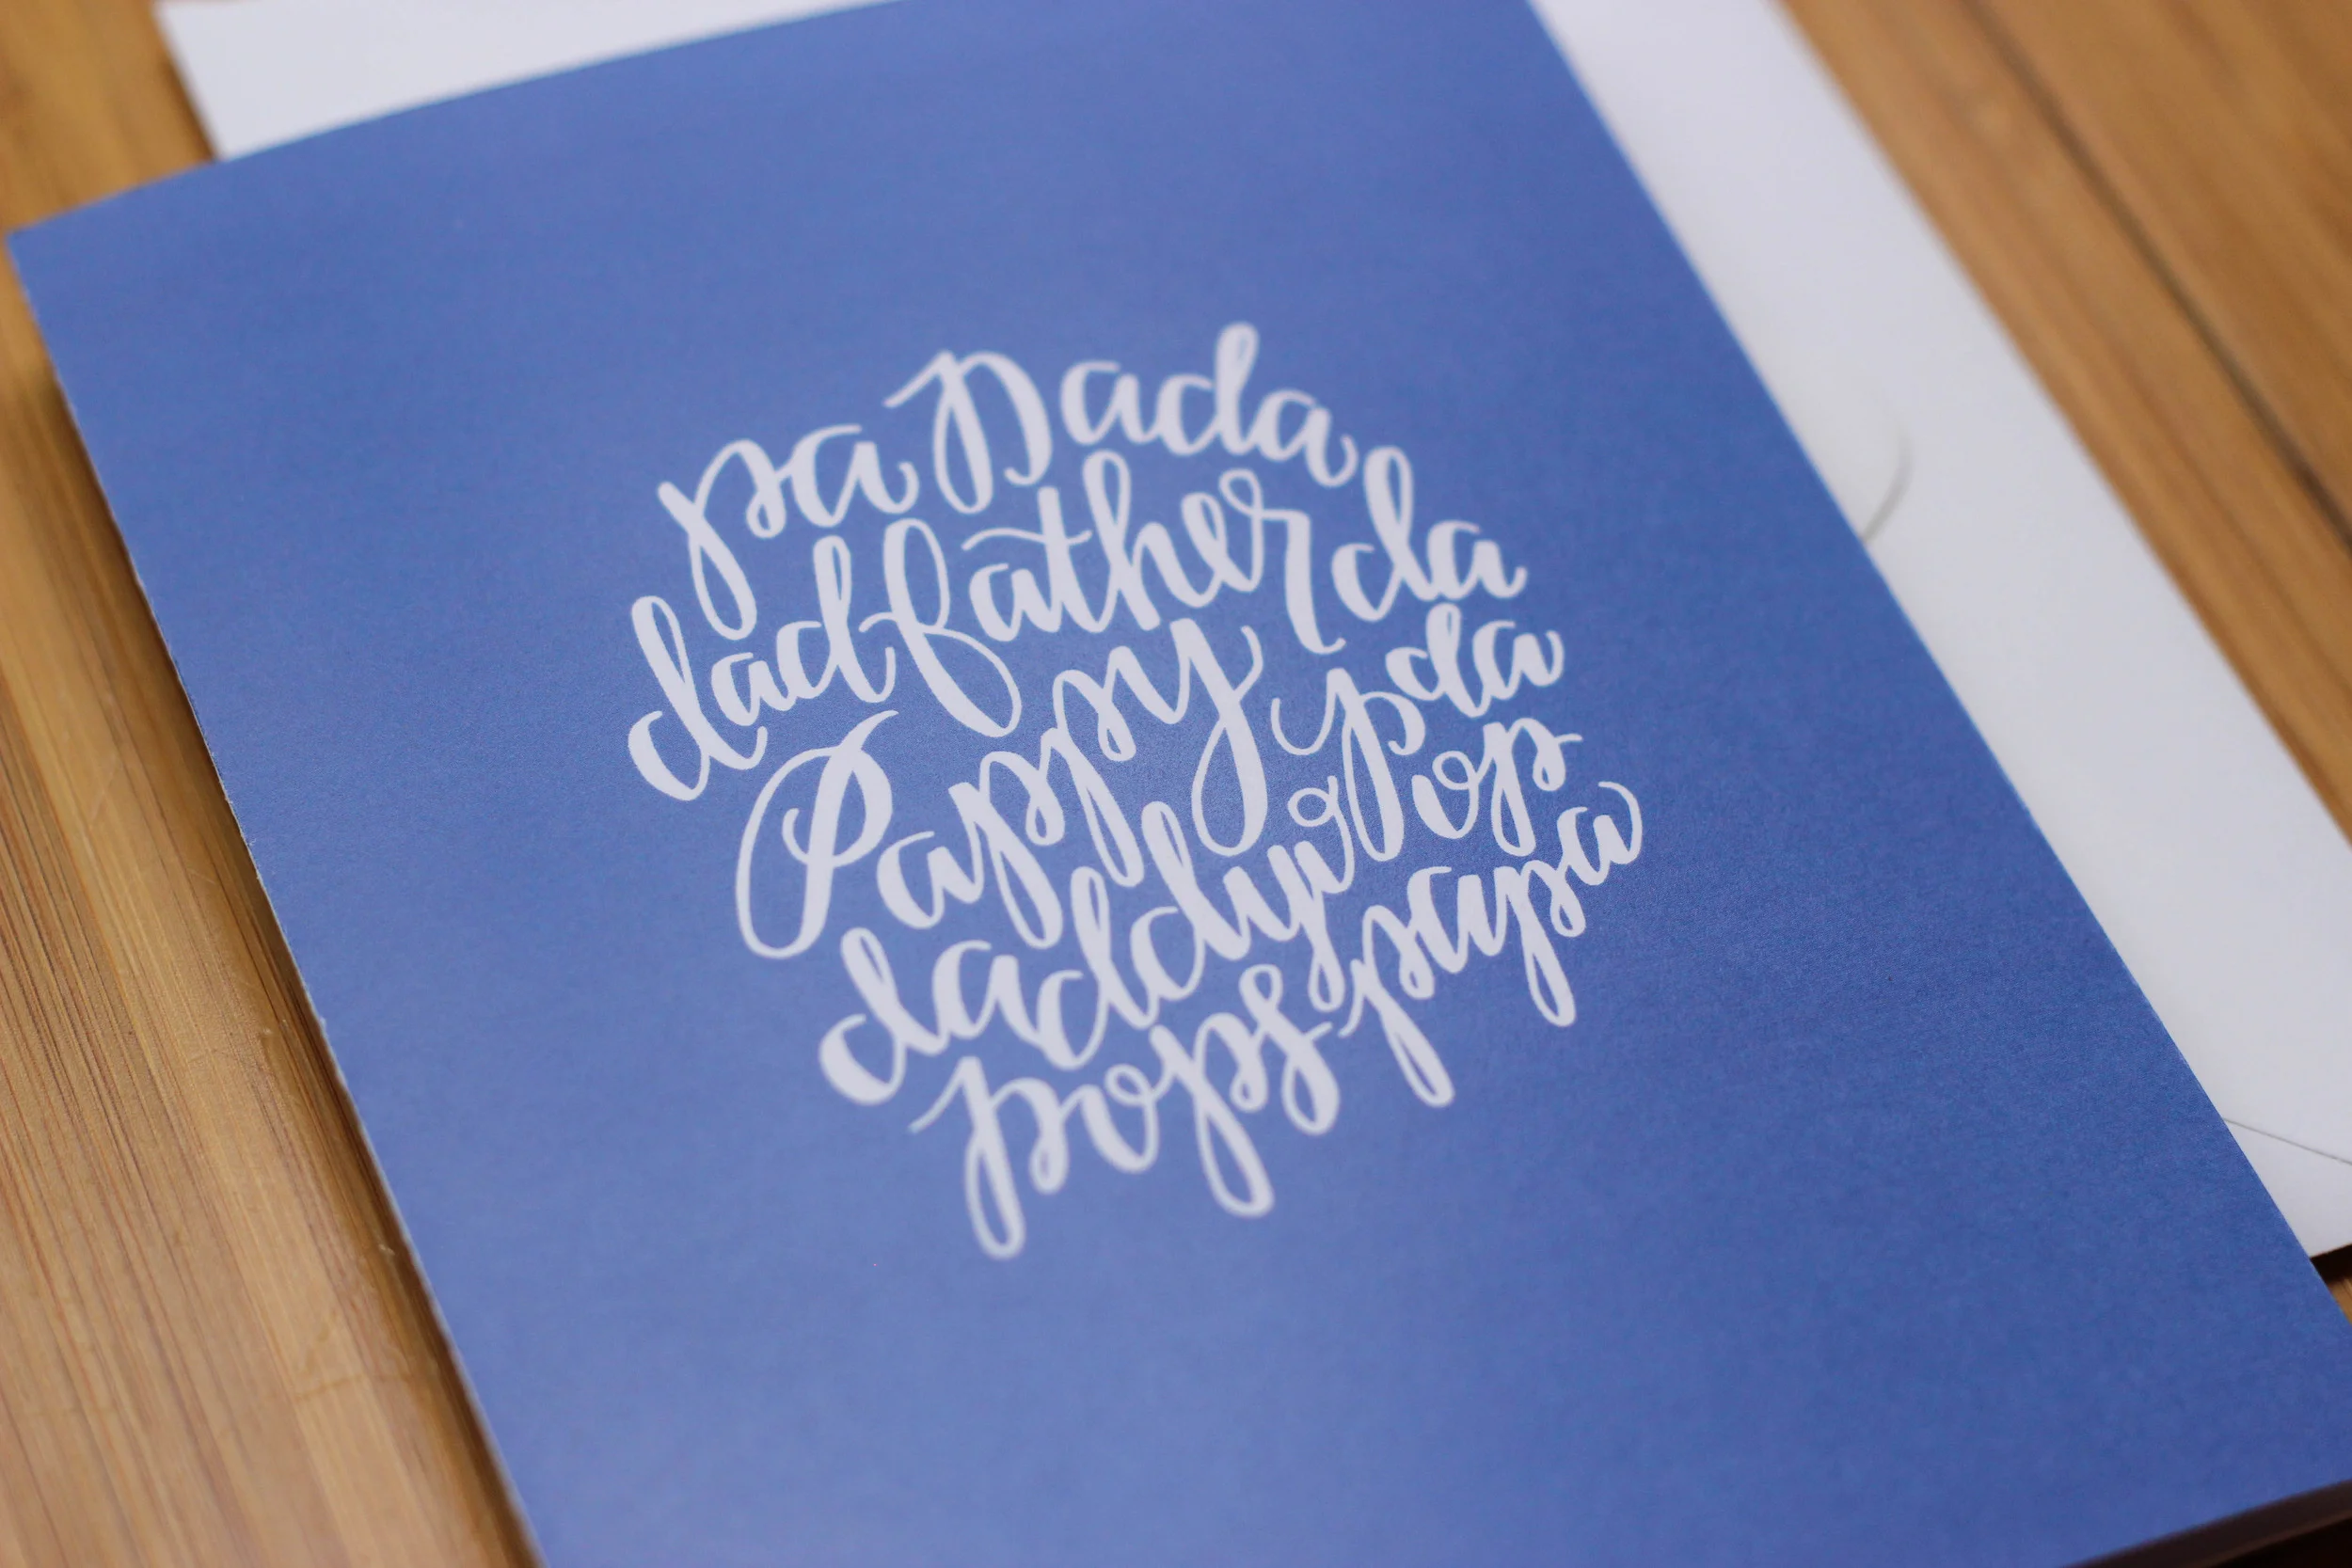 pa Dada
dad father da
Pappy da
daddy Pop
pops papa